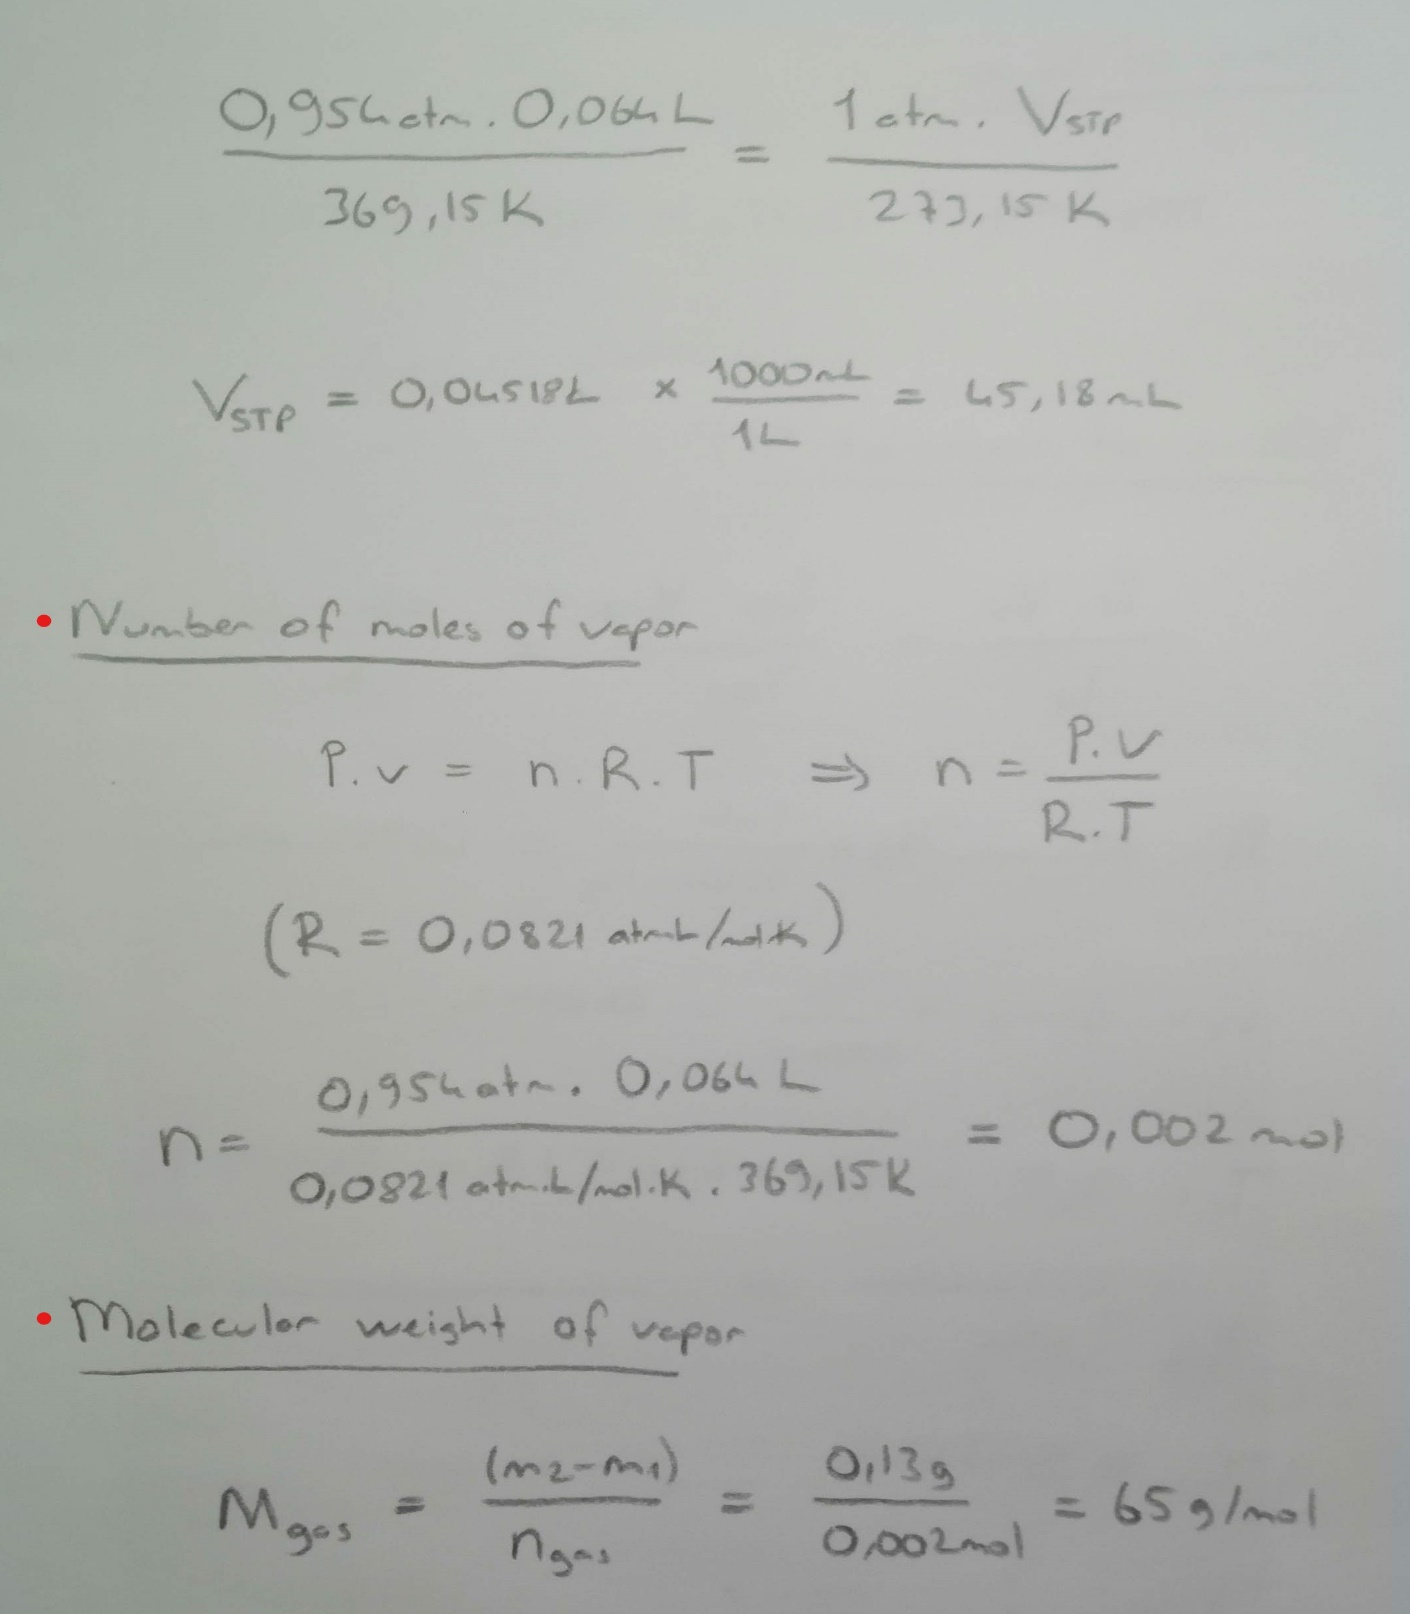 0,954 atm . 0,064 L / 369,15 K = 1 atm . VSTP / 273,15 K
VSTP = 0,04518L x 1000mL / 1L = 45,18 mL
• Number of moles of vapor
P.V = n.R.T ⇒ n = P.V / R.T
(R = 0,0821 atm.L/mol.K)
n = 0,954 atm . 0,064 L / 0,0821 atm.L/mol.K . 369,15 K = 0,002 mol
• Molecular weight of vapor
Mgas = (m2-m1) / ngas = 0,13g / 0,002 mol = 65 g/mol